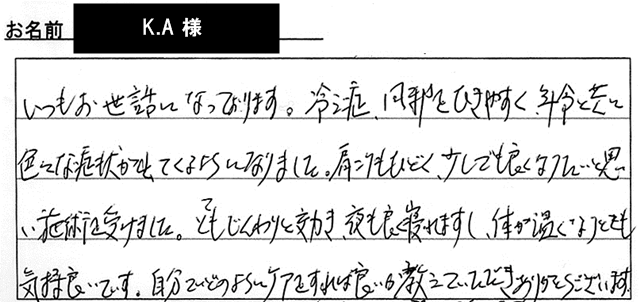 お名前 K.A 様
いつもお世話になっております。冷え症、風邪をひきやすく、年令と共に
色々な症状が出てくるようになりました。肩こりもひどく、少しでも良くなりたいと思
い施術を受けました。とてもじんわりと効き、夜も良く寝れますし、体が温くなりとても
気持良いです。自分でどのようにケアをすれば良いか教えていただきありがとうございます